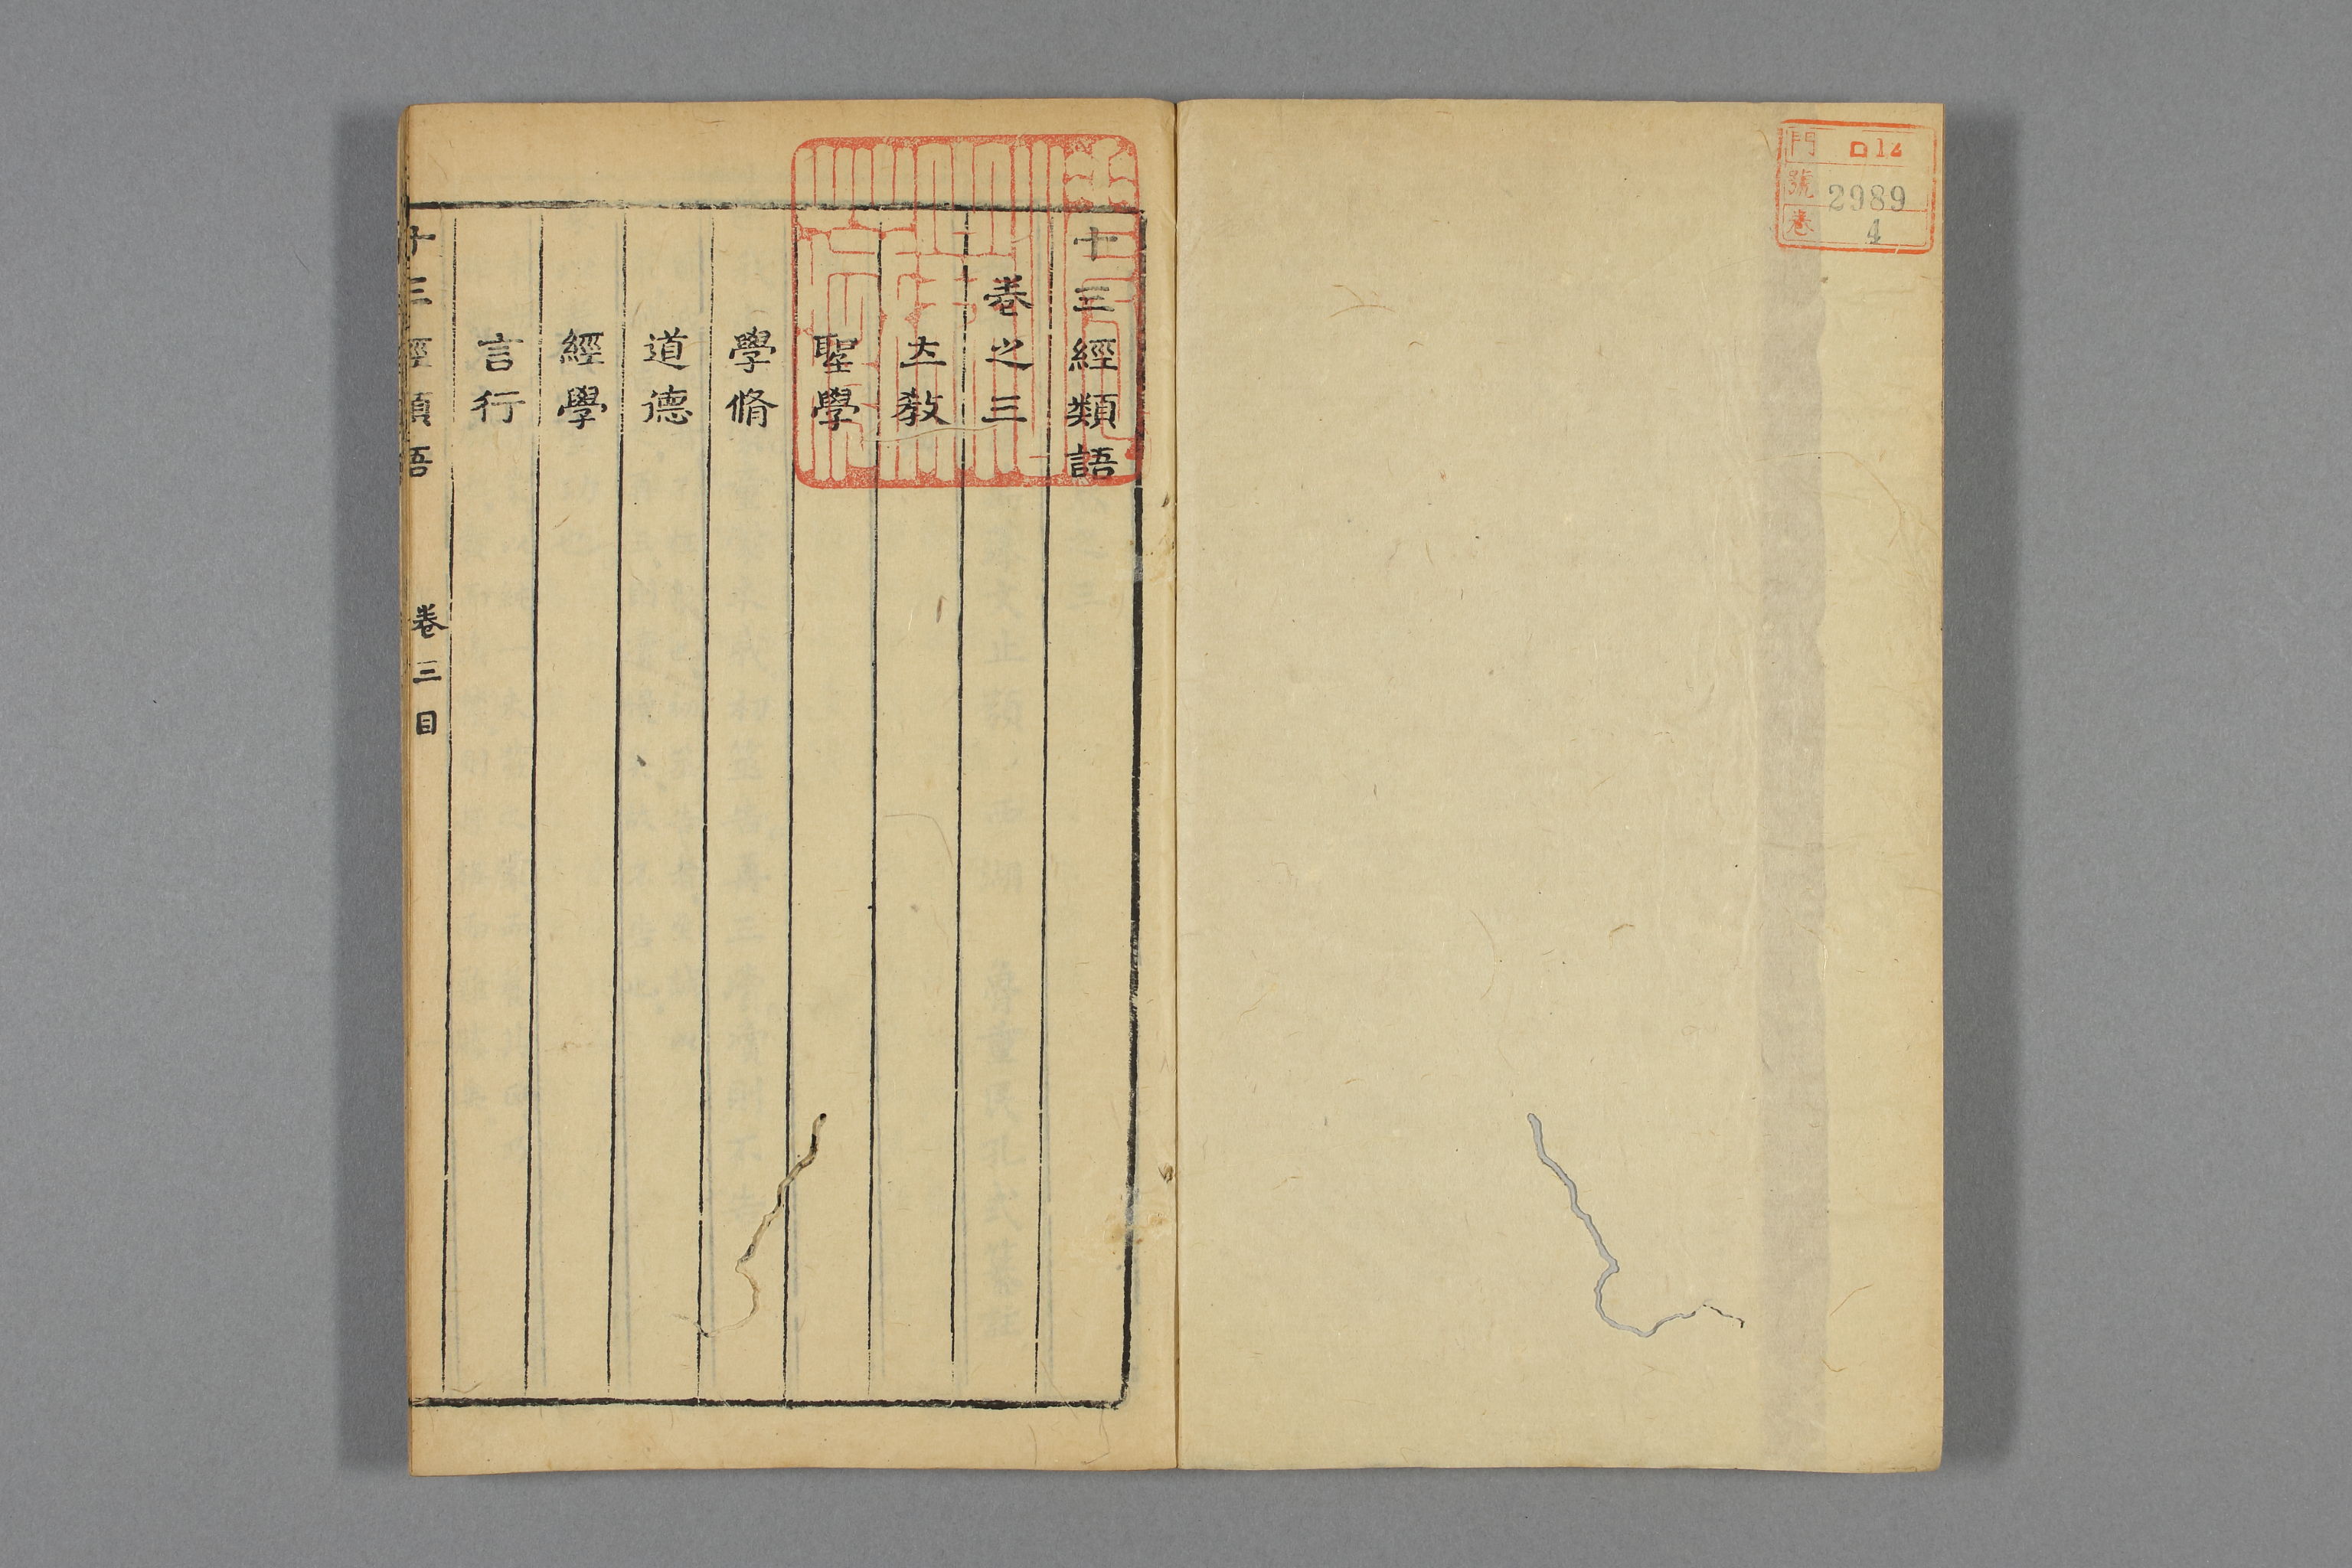 門 ロ12
號 2989
卷 4
十三經類語
卷之三
立教
聖學
學脩
道德
經學
言行
十三經類語 卷三目